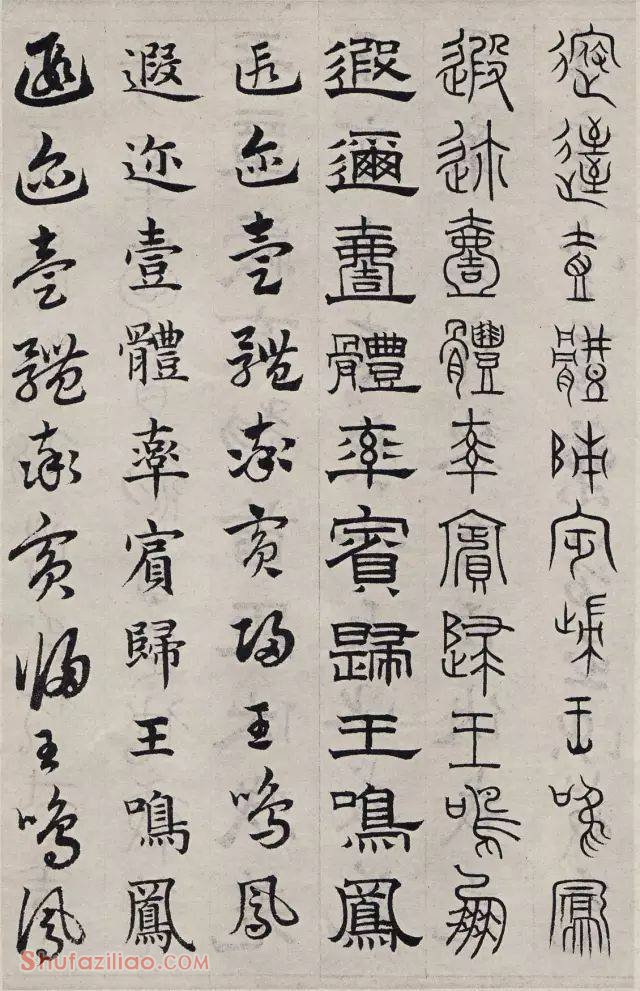 遐邇壹體率賓歸王鳴鳳
遐迩壹體率賓歸王鳴鳳
遐邇壹體率賓歸王鳴鳳
遐迩壹體率賓歸王鳴鳳
遐迩壹體率賓歸王鳴鳳
遐迩壹體率賓歸王鳴鳳
Shufaziliao.com